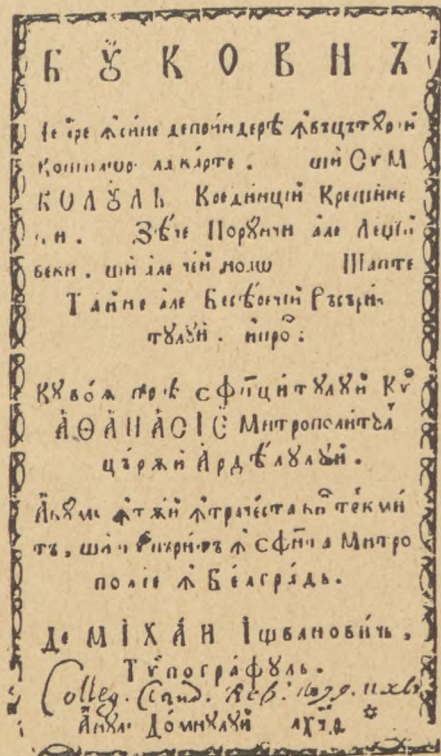 БꙊКОВНЪ
Че аре ꙟ сине деприндерѣ ꙟвъцътꙋрїй
Копїилѡр лакарте. шй СѴМ
БОЛꙊЛЬ Кредйнцїй Крещйне
щи. Зѣче Порꙋнчи але Леџїй
веки, шй але чей ноаѡ Шапте
Тайне але Бесѣречїй Рѣсъри
тꙋлꙋй. и про:
Кꙋ воꙗ пре ѣ сфⷩ҇цитꙋлꙋй Кѷ
АѲАНАСІЕ Митрополитꙋл
цържй Ардѣлꙋлꙋй.
Акꙋмь ꙟтжй ꙟтрачеста кип тѣкми
тъ, ши
ꙟ сфⷩ҇та Митро
полїе ꙟ Бѣлград.
Де МІХАИ Іщвановичь,
Тѵпографꙋль.
Colleg.
Анꙋл Домнꙋлꙋй